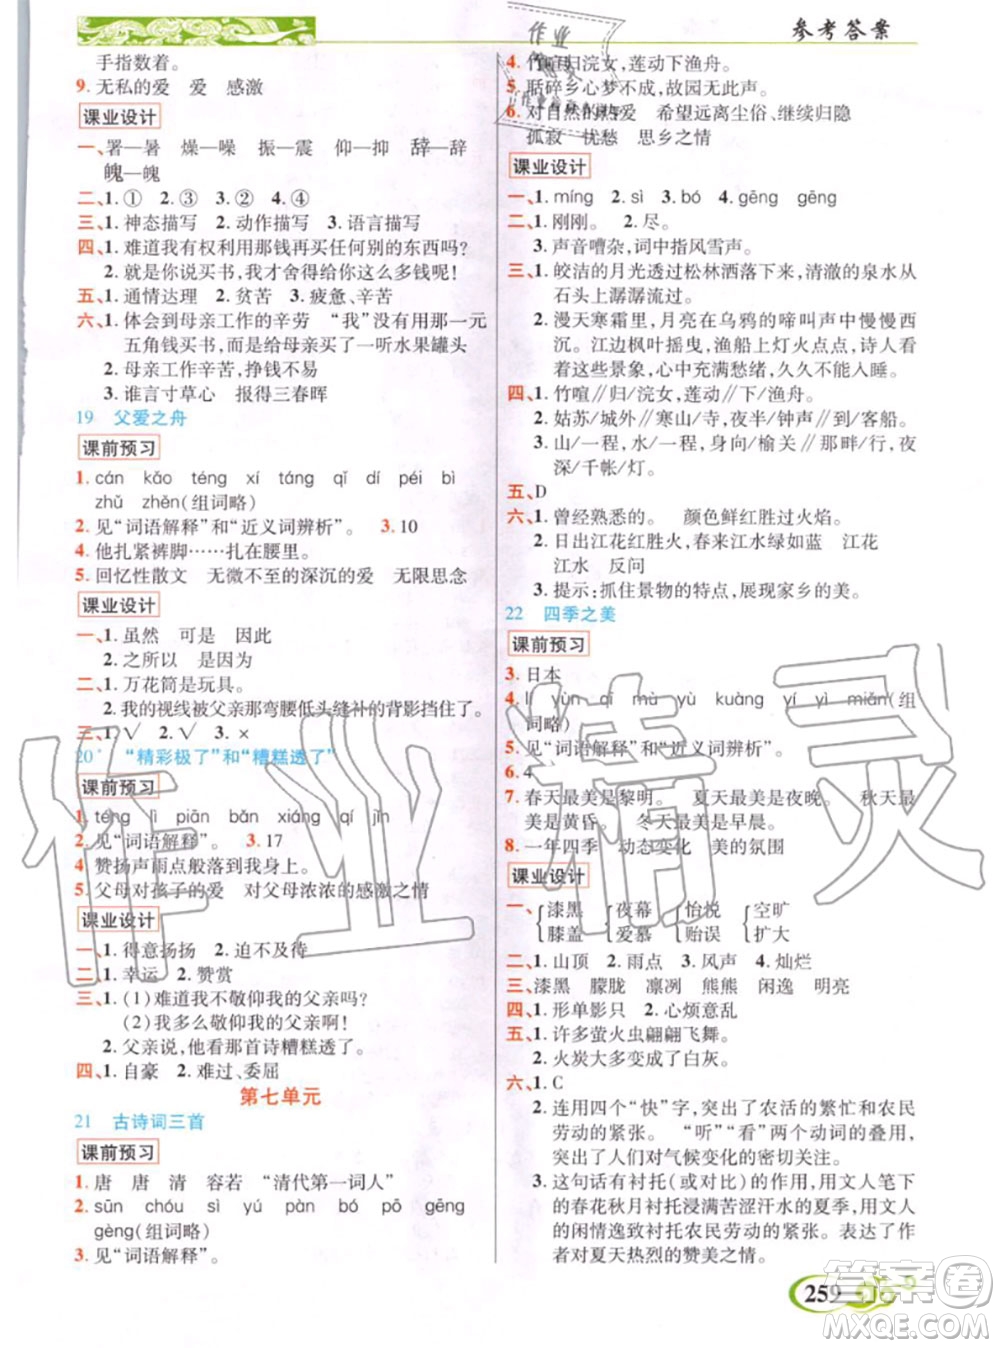 参考答案
手指数着。
9. 无私的爱 爱 感激
课业设计
一、署—暑 燥—噪 振—震 仰—抑 辞—辞
魄—魄
二、1. ① 2. ③ 3. ② 4. ④
三、1. 神态描写 2. 动作描写 3. 语言描写
四、1. 难道我有权利用那钱再买任何别的东西吗?
2. 你是说买书,得花这么多钱呢!
五、1. 通情达理 2. 贫苦 3. 疲惫、辛苦
六、1. 体会到母亲工作的辛劳 “我”没有用那一元
五角钱买书,而是给母亲买了一听水果罐头
2. 母亲工作辛苦,挣钱不易
3. 谁言寸草心 报得三春晖
19 父爱之舟
课前预习
1. cán kǎo téng xí táng qǐ dí péi bì
zhǔ zhěn(组词略)
2. 见“词语解释”和“近义词辨析”。 3. 10
4. 他扎紧裤脚……扎在腰里。
5. 回忆性散文 无微不至的深沉的爱 无限思念
课业设计
一、1. 虽然 可是 因此
2. 之所以 是因为
二、1. 万花筒是玩具。
2. 我的视线被父亲那弯腰低头缝补的背影挡住了。
三、1. √ 2. √ 3. ×
20* “精彩极了”和“糟糕透了”
课前预习
1. téng lì piān bǎn xiáng qí jīn
2. 见“词语解释”。 3. 17
4. 赞扬声雨点般落到我身上。
5. 父母对孩子的爱 对父母浓浓的感激之情
课业设计
一、1. 得意扬扬 2. 迫不及待
二、1. 幸运 2. 赞赏
三、1. (1) 难道我不敬仰我的父亲吗?
(2) 我多么敬仰我的父亲啊!
2. 父亲说,他看那首诗糟糕透了。
四、1. 自豪 2. 难过、委屈
第七单元
21 古诗词三首
课前预习
1. 唐 唐 清 容若 “清代第一词人”
2. sūn chóu sì yú pàn bó pò
gèng(组词略)
3. 见“词语解释”。
4. 竹喧归浣女,莲动下渔舟。
5. 聒碎乡心梦不成,故园无此声。
6. 对自然的热爱 希望远离尘俗、继续归隐
孤寂 忧愁 思乡之情
课业设计
一、1. míng 2. sì 3. bó 4. gēng gēng
二、1. 刚刚。 2. 尽。
3. 声音嘈杂,词中指风雪声。
三、1. 皎洁的月光透过松林洒落下来,清澈的泉水从
石头上潺潺流过。
2. 漫天寒霜里,月亮在乌鸦的啼叫声中悄悄西
沉。江边枫叶摇曳,渔船上灯火点点,诗人看着
这些景象,心中充满愁绪,久久不能入睡。
四、1. 竹喧∕∕归∕浣女,莲动∕∕下∕渔舟。
2. 姑苏∕城外∕∕寒山∕寺,夜半∕钟声∕∕到∕客船。
3. 山∕一程,水∕一程,身向∕榆关∕∕那畔∕行,夜
深∕千帐∕灯。
五、D
六、1. 曾经熟悉的。 颜色鲜红胜过火焰。
2. 日出江花红胜火,春来江水绿如蓝 江花
江水 反问
3. 提示:抓住景物的特点,展现家乡的美。
22 四季之美
课前预习
3. 日本
4. lí yùn qī mù yù kuàng yí yì miǎn(组
词略)
5. 见“词语解释”和“近义词辨析”。
6. 4
7. 春天最美是黎明。 夏天最美是夜晚。 秋天最
美是黄昏。 冬天最美是早晨。
8. 一年四季 动态变化 美的氛围
课业设计
一、漆黑 夜幕 怡悦 空旷
膝盖 爱慕 贻误 扩大
二、1. 山顶 2. 雨点 3. 风声 4. 灿烂
三、漆黑 朦胧 凛冽 熊熊 闲逸 明亮
四、1. 形单影只 2. 心烦意乱
五、1. 许多萤火虫翩翩飞舞。
2. 火炭大多变成了白灰。
六、1. C
2. 连用四个“快”字,突出了农活的繁忙和农民
劳动的紧张。“听”“看”两个动词的叠用,
体现了农民对气候变化的密切关注。
3. 这句话有衬托(或对比)的作用,用文人笔下
的春花秋月衬托浸满苦涩汗水的夏季,用文人
的闲情逸致衬托农民劳动的紧张。表达了作者
对夏天热烈的赞美之情。
259
作业精灵
答案圈
MXQE.COM